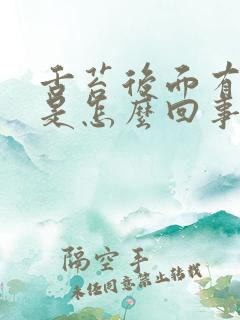 舌苔後面有
是怎麼回事
隔空手
未任同意禁止转载